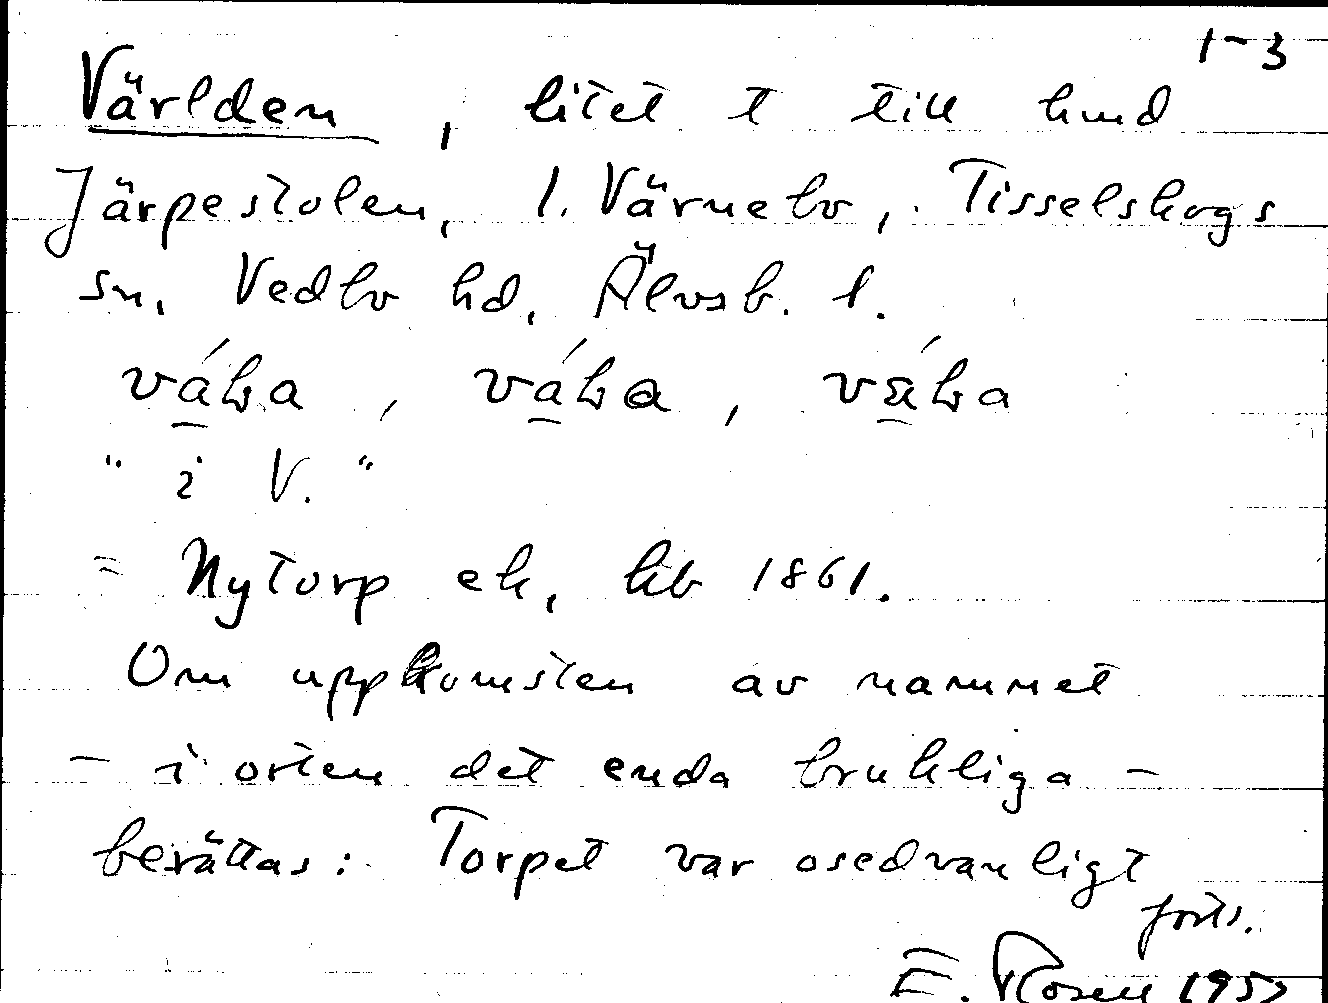 1-3
Världen, litet t till hmd
Järpestolen, 1. Värnebo, Tisselskogs
sn, Vedbo hd, Älvsb. l.
" i V. "
= Nytorp ek, hb 1861.
Om uppkomsten av namnet
- i orten det enda brukliga -
berättas: Torpet var osedvanligt
forts.
E. Rosen